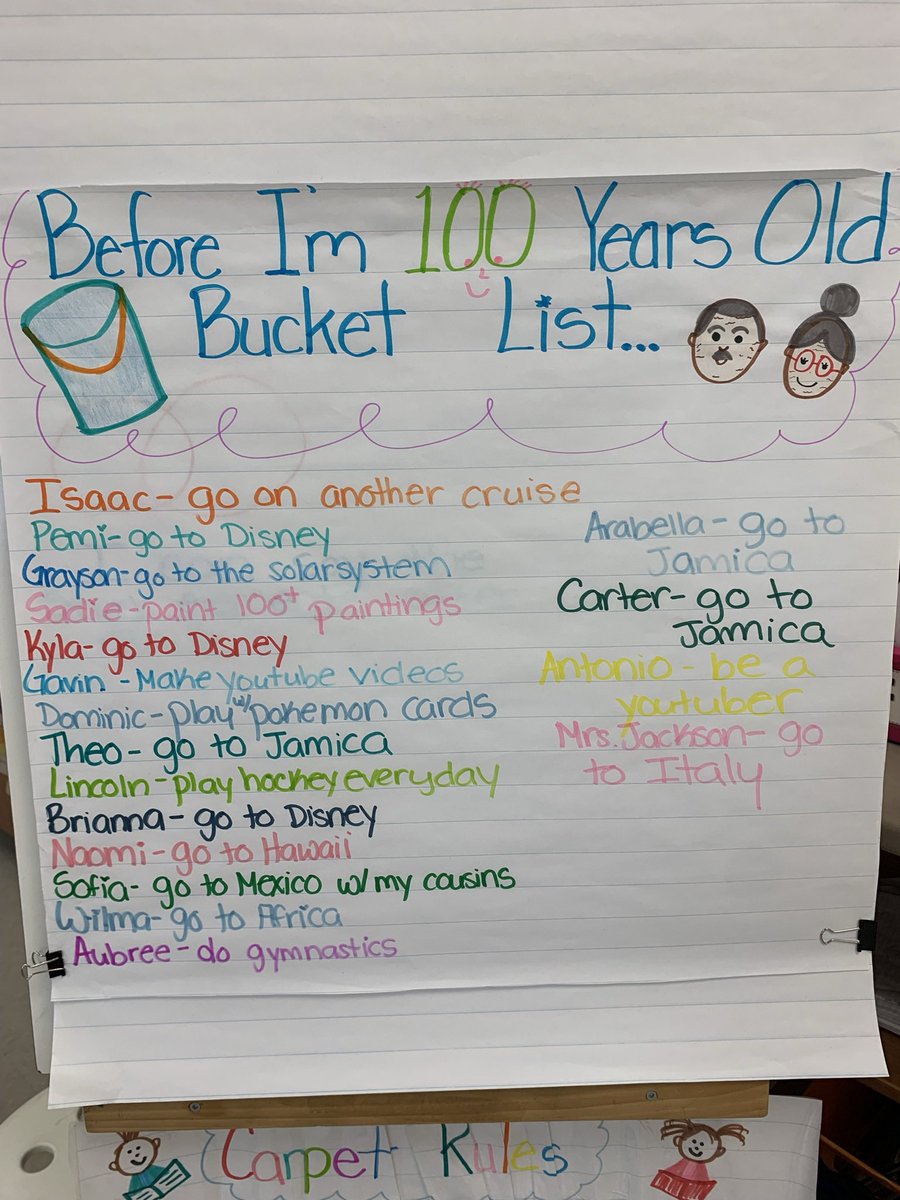 Before I'm 100 Years Old
Bucket List...
Isaac- go on another cruise
Pemi- go to Disney
Grayson- go to the solarsystem
Sadie- paint 100+ paintings
Kyla- go to Disney
Gavin - Make youtube videos
Dominic- play w/ pokemon cards
Theo- go to Jamica
Lincoln- play hockey everyday
Brianna- go to Disney
Naomi- go to Hawaii
Sofia- go to Mexico w/ my cousins
Wilma- go to Africa
Aubree- do gymnastics
Arabella- go to
Jamica
Carter- go to
Jamica
Antonio - be a
youtuber
Mrs. Jackson- go
to Italy
Carpet Rules